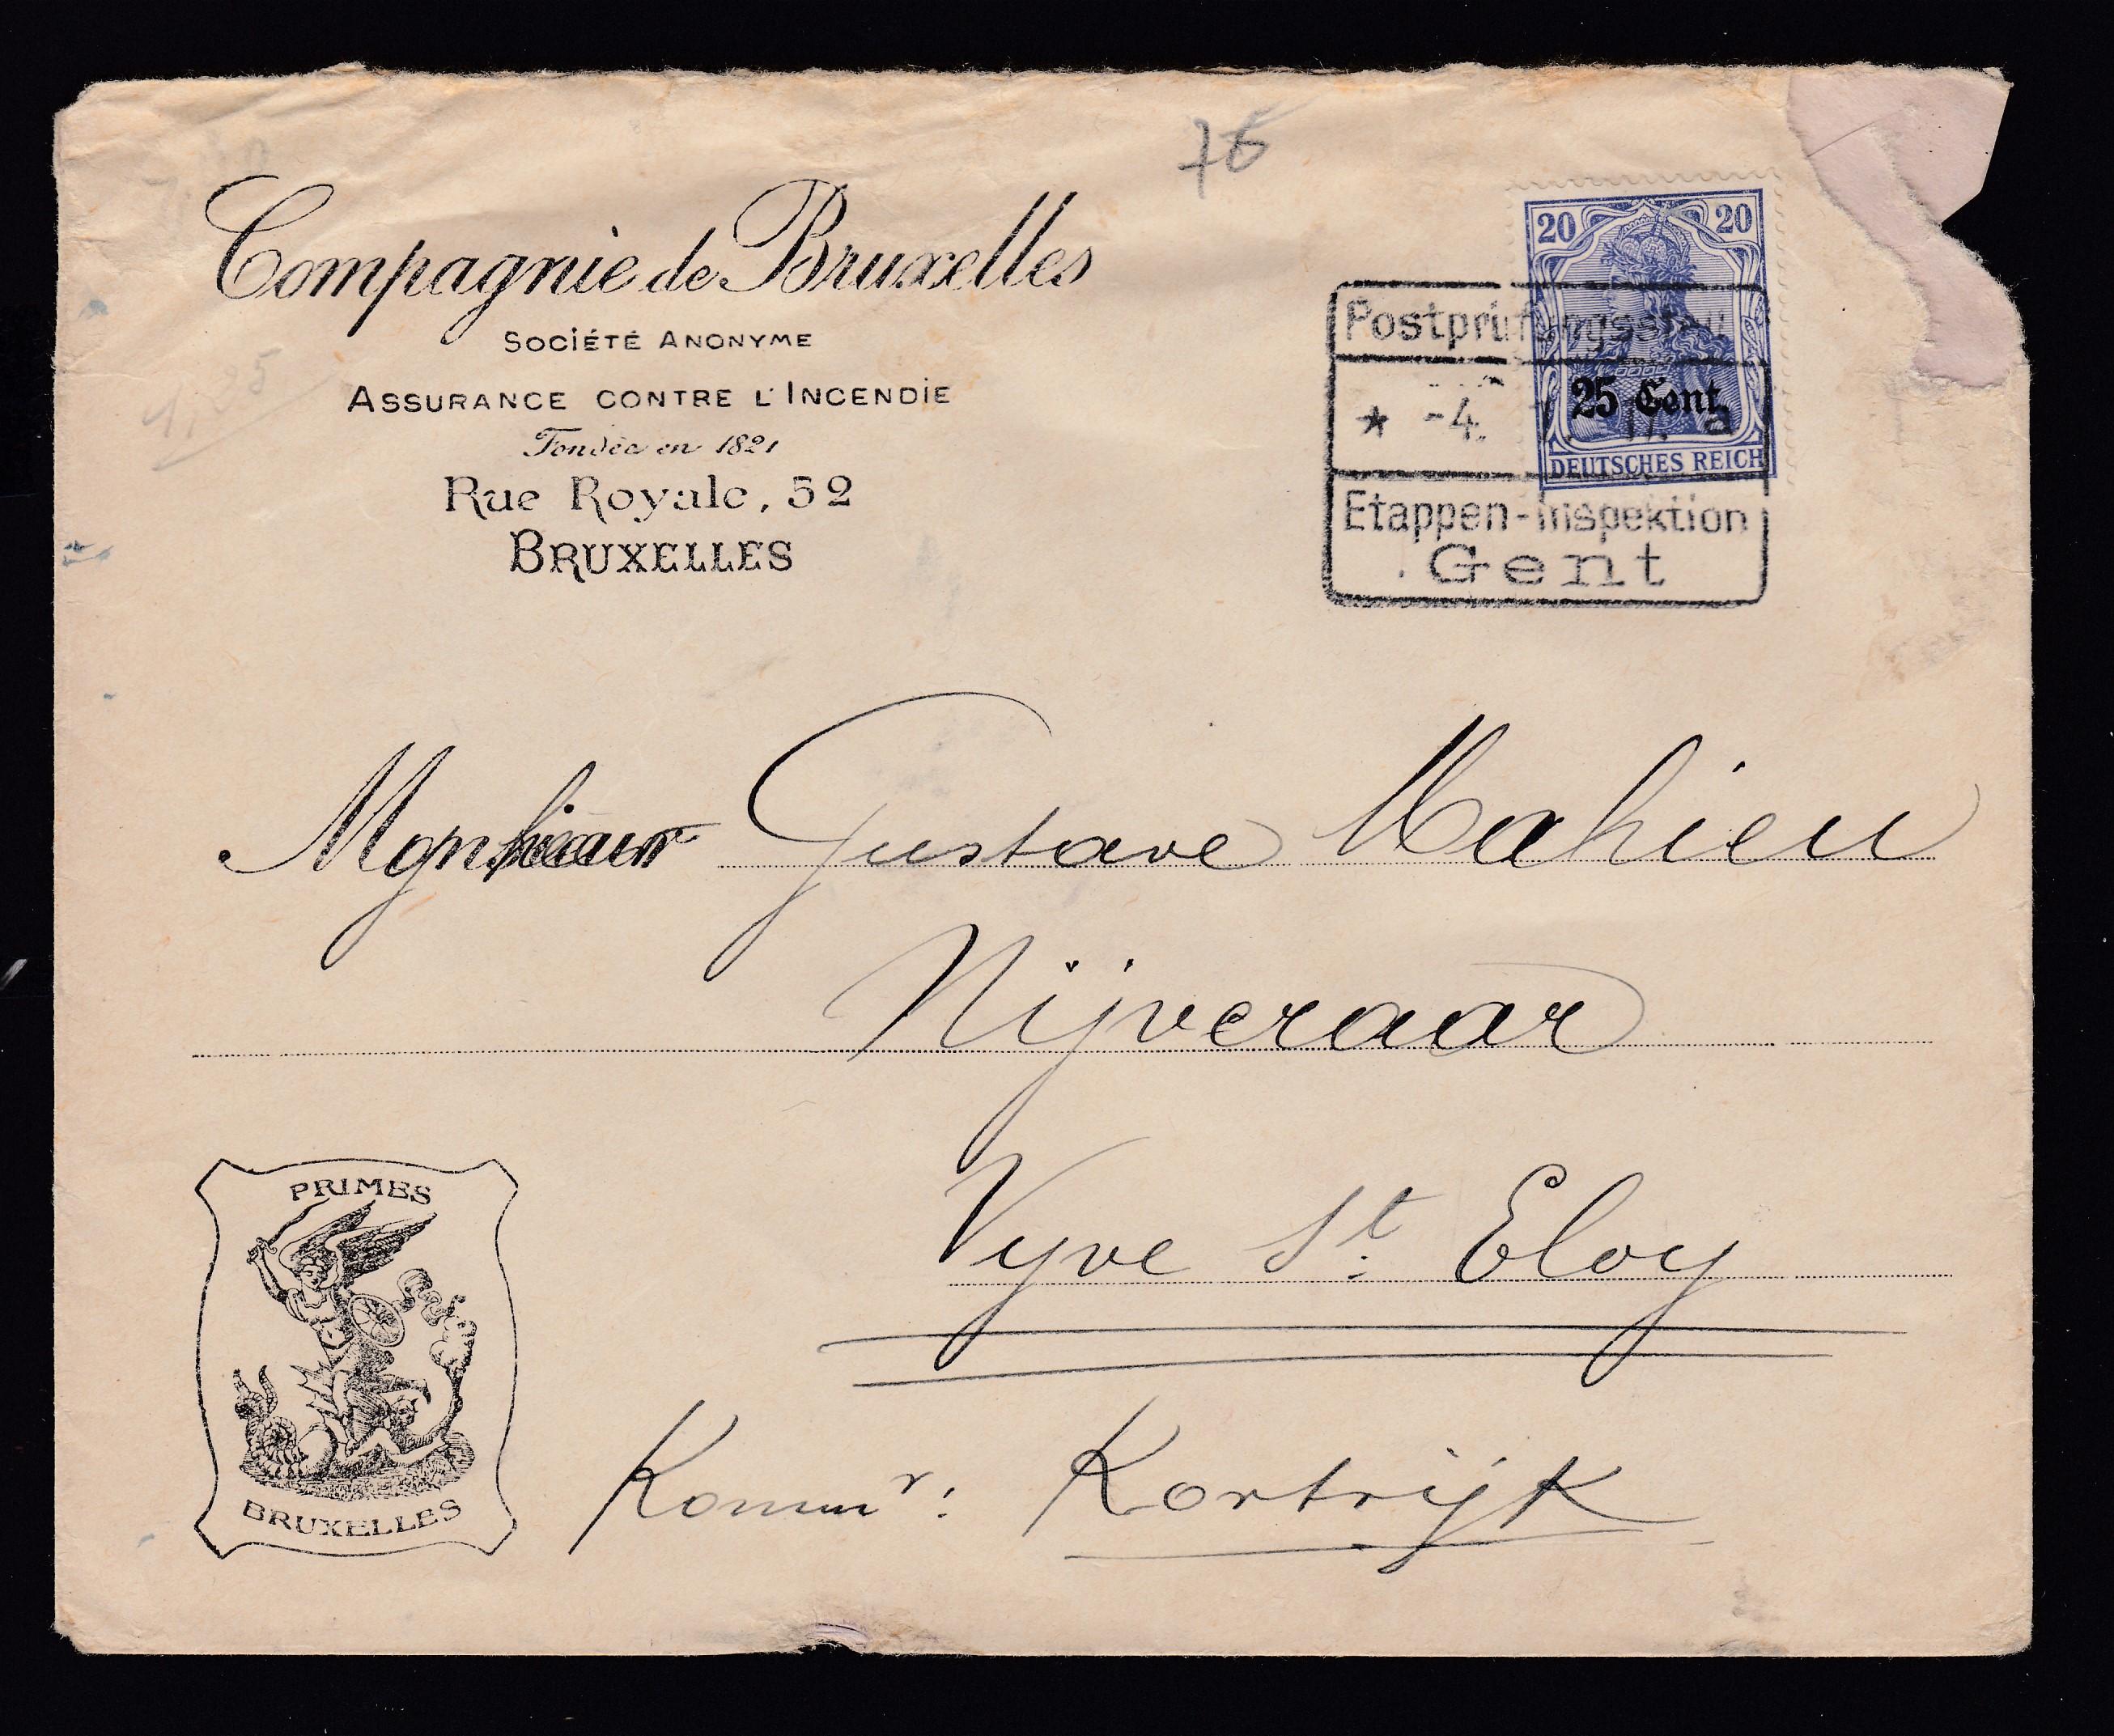 76
Compagnie de Bruxelles
SOCIÉTÉ ANONYME
ASSURANCE CONTRE L'INCENDIE
Fondée en 1821
Rue Royale, 52
BRUXELLES
20 20
25 Cent.
DEUTSCHES REICH
Postprüfungsstelle
* -4. 17. a
Etappen-Inspektion
Gent
Monsieur Gustave Mahieu
Nijveraar
Vyve St. Eloy
Komm r: Kortrijk
PRIMES
BRUXELLES